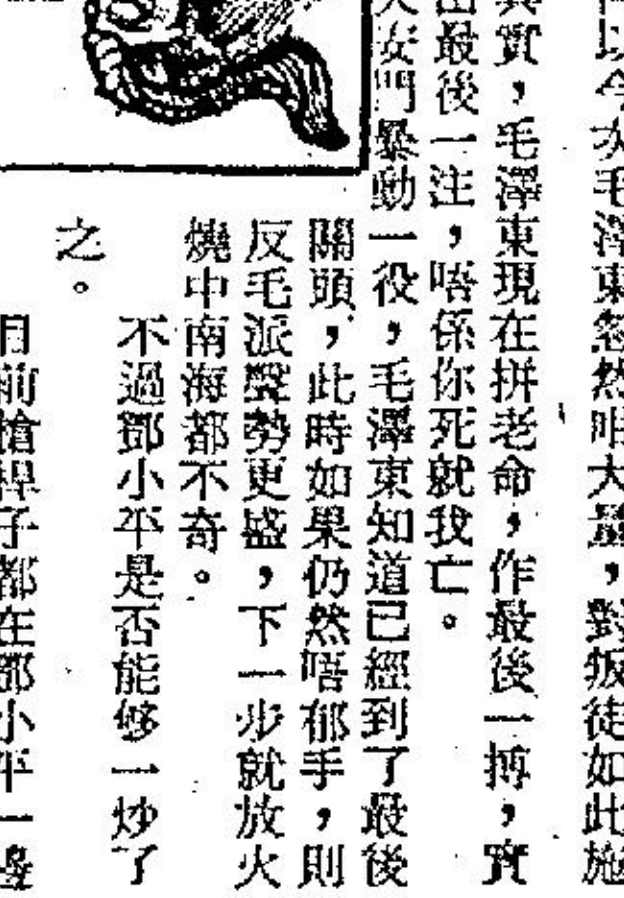 以今次毛澤東忽然咁大量，對叛徒如此施
其實，毛澤東現在拼老命，作最後一搏，實
出最後一注，唔係你死就我亡。
天安門暴動一役，毛澤東知道已經到了最後
關頭，此時如果仍然唔郁手，則
反毛派聲勢更盛，下一步就放火
燒中南海都不奇。
不過鄧小平是否能够一炒了
之。
目前槍桿子都在鄧小平一邊